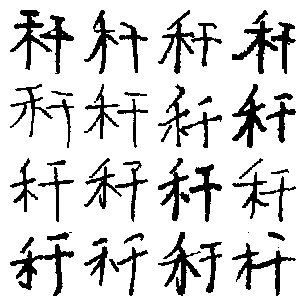 秆秆秆秆
秆秆秆秆
秆秆秆秆
秆秆秆秆